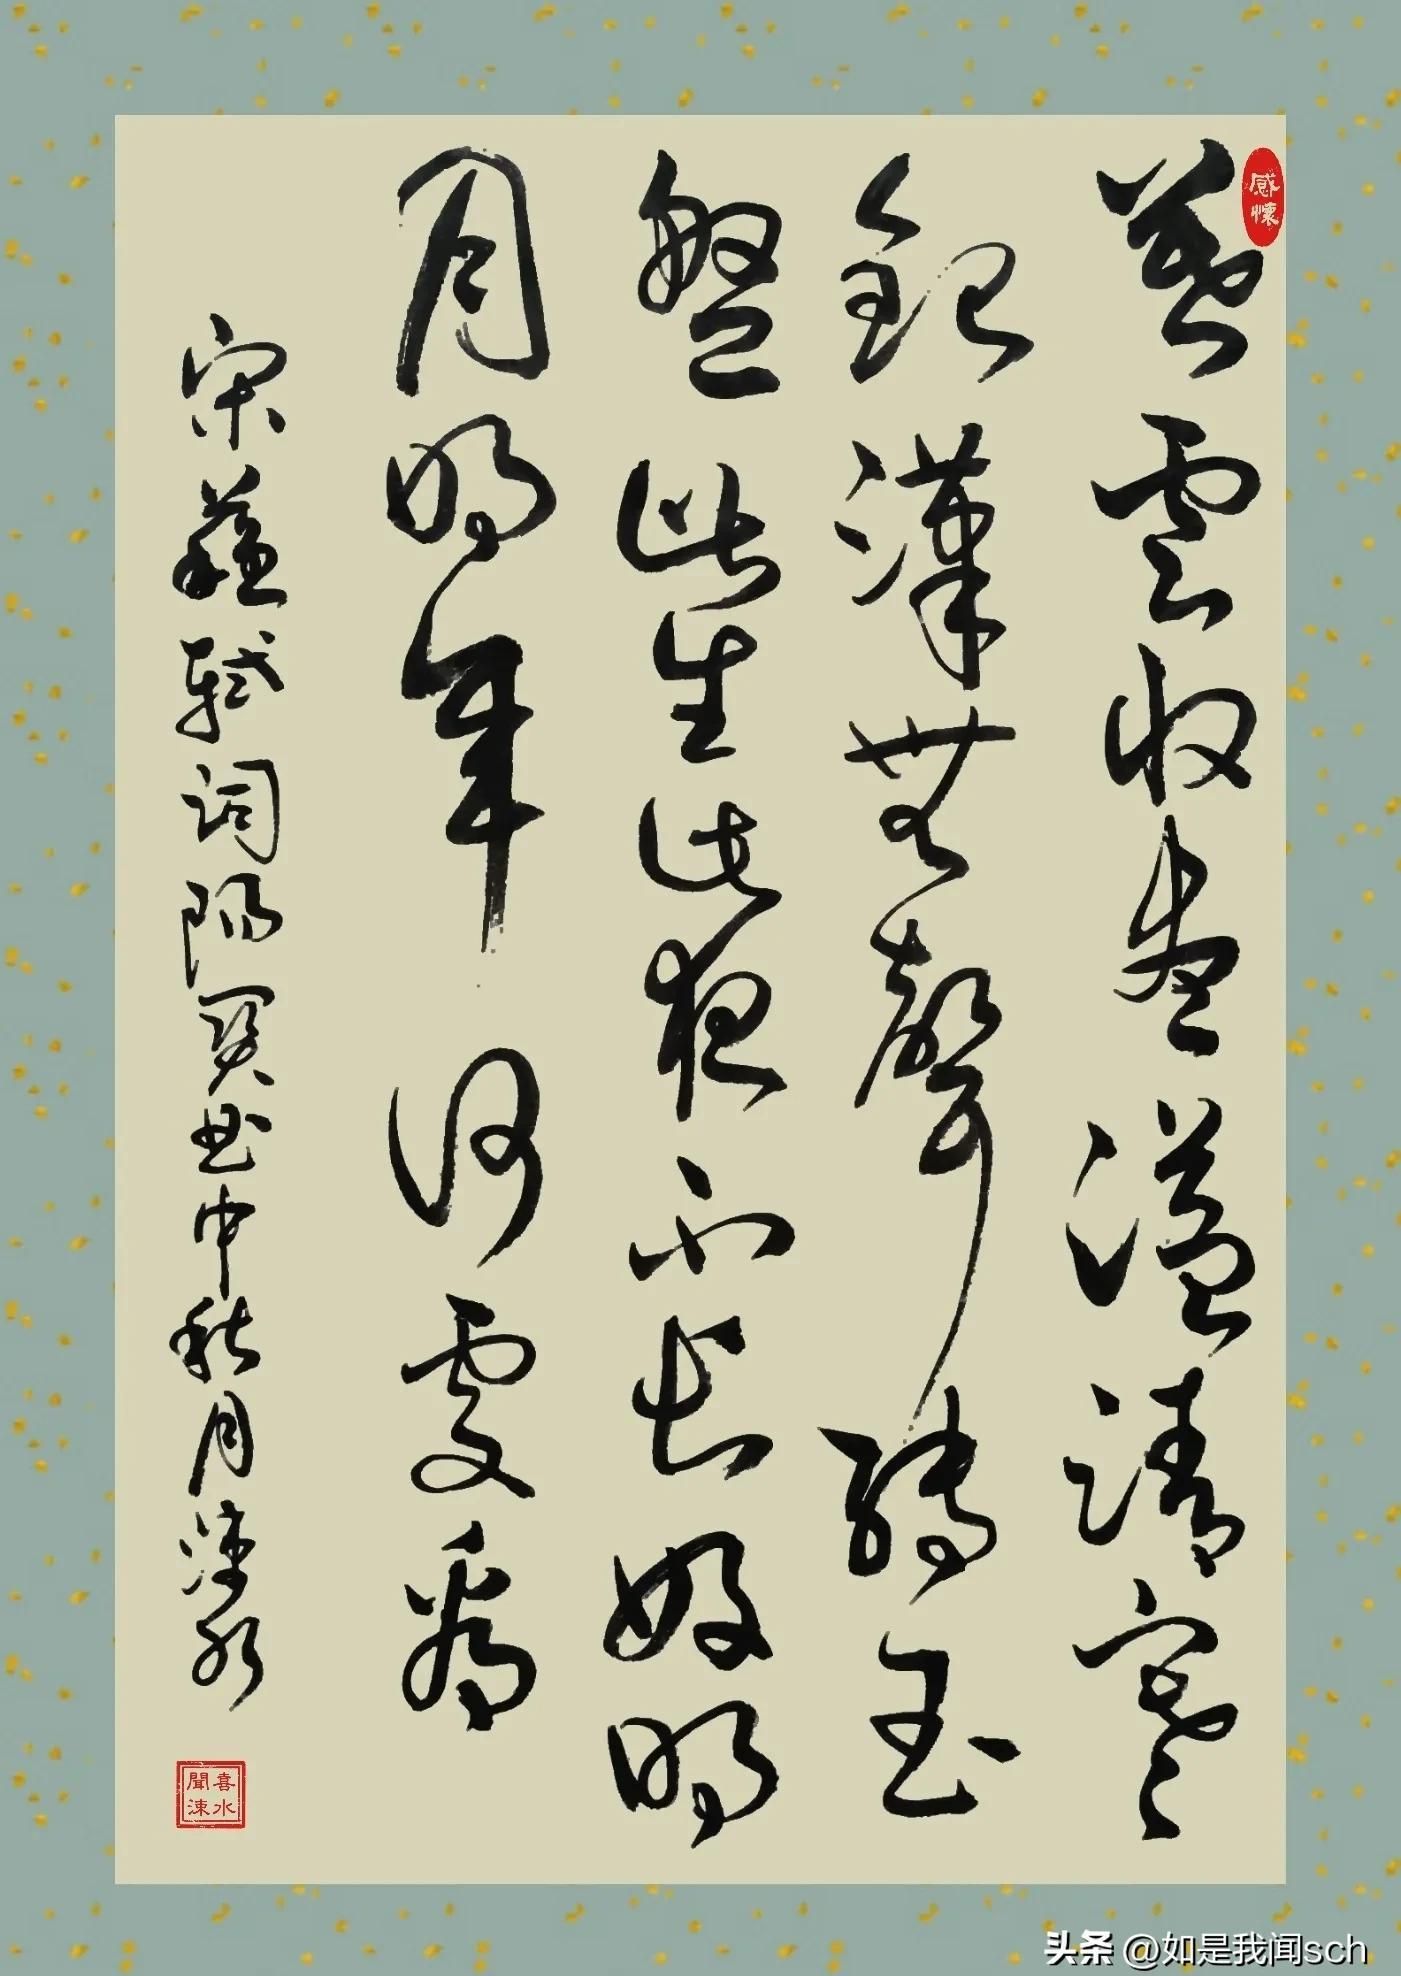 感懷
暮雲收盡溢清寒
銀漢無聲轉玉
盤此生此夜不長好明
月明年何處看
宋蘇軾詞陽關曲中秋月涑水
喜水聞涑
头条 @如是我闻sch